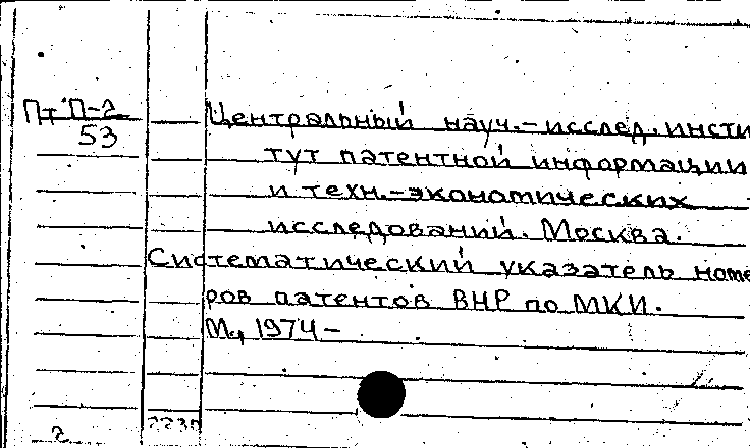 Пт П-2
53
Центральный науч.-исслед. инсти
тут патентной информации
и техн.-экономических
исследований. Москва.
Систематический указатель номе
ров патентов ВНР по МКИ.
М., 1974-
2